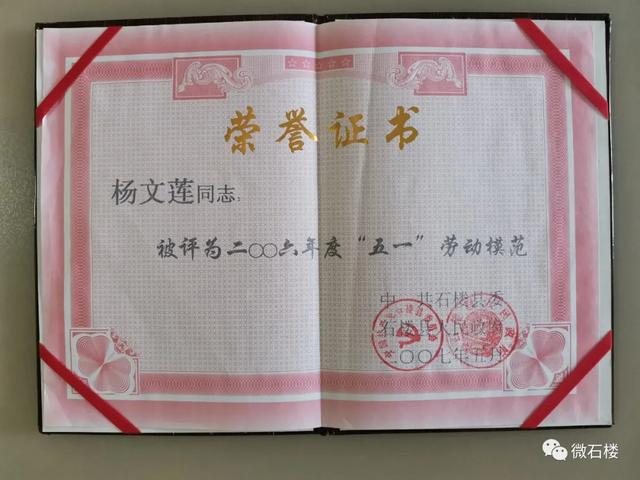 荣誉证书
杨文莲同志：
被评为二〇〇六年度“五一”劳动模范
中共石楼县委
石楼县人民政府
二〇〇七年五月
微石楼